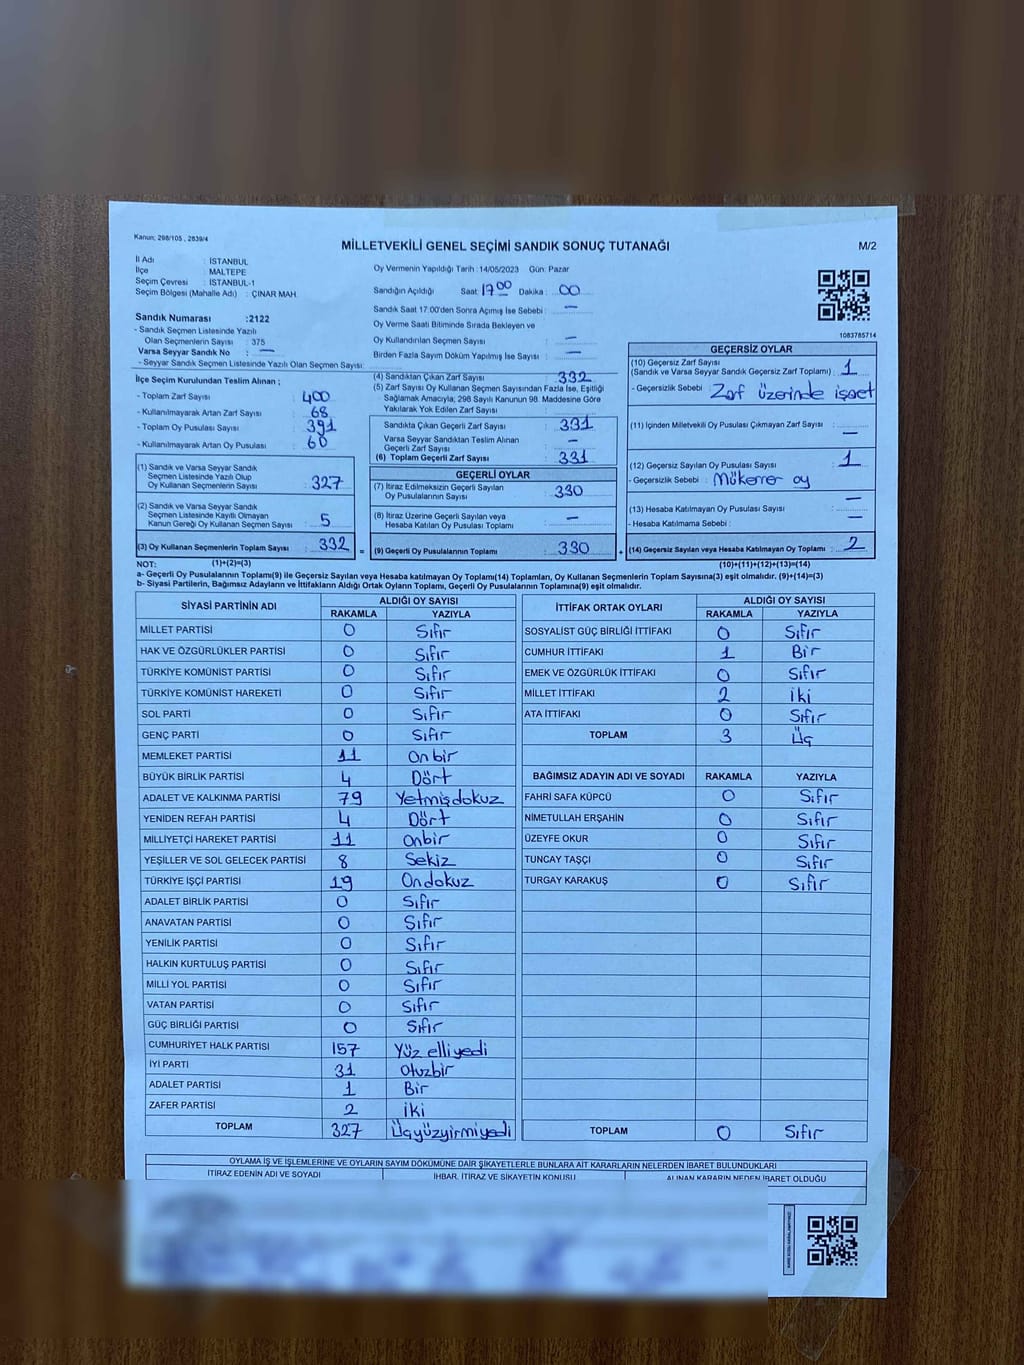 Kanun: 298/105 , 2839/4
MİLLETVEKİLİ GENEL SEÇİMİ SANDIK SONUÇ TUTANAĞI
M/2
İl Adı : İSTANBUL
İlçe : MALTEPE
Seçim Çevresi : İSTANBUL-1
Seçim Bölgesi (Mahalle Adı) : ÇINAR MAH.
Sandık Numarası :2122
- Sandık Seçmen Listesinde Yazılı
Olan Seçmenlerin Sayısı : 375
Varsa Seyyar Sandık No : —
- Seyyar Sandık Seçmen Listesinde Yazılı Olan Seçmen Sayısı:
Oy Vermenin Yapıldığı Tarih :14/05/2023 Gün: Pazar
Sandığın Açıldığı Saat: 17 00 Dakika : 00
Sandık Saat 17:00'den Sonra Açılmış İse Sebebi : —
Oy Verme Saati Bitiminde Sırada Bekleyen ve
Oy Kullandırılan Seçmen Sayısı : —
Birden Fazla Sayım Döküm Yapılmış İse Sayısı : —
1083785714
İlçe Seçim Kurulundan Teslim Alınan ;
- Toplam Zarf Sayısı : 400
- Kullanılmayarak Artan Zarf Sayısı : 68
- Toplam Oy Pusulası Sayısı : 391
- Kullanılmayarak Artan Oy Pusulası : 60
(1) Sandık ve Varsa Seyyar Sandık
Seçmen Listesinde Yazılı Olup
Oy Kullanan Seçmenlerin Sayısı : 327
(2) Sandık ve Varsa Seyyar Sandık
Seçmen Listesinde Kayıtlı Olmayan
Kanun Gereği Oy Kullanan Seçmen Sayısı : 5
(3) Oy Kullanan Seçmenlerin Toplam Sayısı : 332
(4) Sandıktan Çıkan Zarf Sayısı : 332
(5) Zarf Sayısı Oy Kullanan Seçmen Sayısından Fazla İse, Eşitliği
Sağlamak Amacıyla; 298 Sayılı Kanunun 98. Maddesine Göre
Yakılarak Yok Edilen Zarf Sayısı :
Sandıkta Çıkan Geçerli Zarf Sayısı : 331
Varsa Seyyar Sandıktan Teslim Alınan
Geçerli Zarf Sayısı : —
(6) Toplam Geçerli Zarf Sayısı : 331
GEÇERLİ OYLAR
(7) İtiraz Edilmeksizin Geçerli Sayılan
Oy Pusulalarının Sayısı : 330
(8) İtiraz Üzerine Geçerli Sayılan veya
Hesaba Katılan Oy Pusulası Toplamı : —
= (9) Geçerli Oy Pusulalarının Toplamı : 330 +
GEÇERSİZ OYLAR
(10) Geçersiz Zarf Sayısı
(Sandık ve Varsa Seyyar Sandık Geçersiz Zarf Toplamı) : 1
- Geçersizlik Sebebi : Zarf üzerinde işaet
(11) İçinden Milletvekili Oy Pusulası Çıkmayan Zarf Sayısı : —
(12) Geçersiz Sayılan Oy Pusulası Sayısı : 1
- Geçersizlik Sebebi : Mükerrer oy
(13) Hesaba Katılmayan Oy Pusulası Sayısı : —
- Hesaba Katılmama Sebebi : —
(14) Geçersiz Sayılan veya Hesaba Katılmayan Oy Toplamı : 2
NOT: (1)+(2)=(3) (10)+(11)+(12)+(13)=(14)
a- Geçerli Oy Pusulalarının Toplamı(9) ile Geçersiz Sayılan veya Hesaba katılmayan Oy Toplamı(14) Toplamları, Oy Kullanan Seçmenlerin Toplam Sayısına(3) eşit olmalıdır. (9)+(14)=(3)
b- Siyasi Partilerin, Bağımsız Adayların ve İttifakların Aldığı Ortak Oyların Toplamı, Geçerli Oy Pusulalarının Toplamına(9) eşit olmalıdır.
SİYASİ PARTİNİN ADI ALDIĞI OY SAYISI
RAKAMLA YAZIYLA
MİLLET PARTİSİ 0 Sıfır
HAK VE ÖZGÜRLÜKLER PARTİSİ 0 Sıfır
TÜRKİYE KOMÜNİST PARTİSİ 0 Sıfır
TÜRKİYE KOMÜNİST HAREKETİ 0 Sıfır
SOL PARTİ 0 Sıfır
GENÇ PARTİ 0 Sıfır
MEMLEKET PARTİSİ 11 Onbir
BÜYÜK BİRLİK PARTİSİ 4 Dört
ADALET VE KALKINMA PARTİSİ 79 Yetmişdokuz
YENİDEN REFAH PARTİSİ 4 Dört
MİLLİYETÇİ HAREKET PARTİSİ 11 Onbir
YEŞİLLER VE SOL GELECEK PARTİSİ 8 Sekiz
TÜRKİYE İŞÇİ PARTİSİ 19 Ondokuz
ADALET BİRLİK PARTİSİ 0 Sıfır
ANAVATAN PARTİSİ 0 Sıfır
YENİLİK PARTİSİ 0 Sıfır
HALKIN KURTULUŞ PARTİSİ 0 Sıfır
MİLLİ YOL PARTİSİ 0 Sıfır
VATAN PARTİSİ 0 Sıfır
GÜÇ BİRLİĞİ PARTİSİ 0 Sıfır
CUMHURİYET HALK PARTİSİ 157 Yüz elliyedi
İYİ PARTİ 31 Otuzbir
ADALET PARTİSİ 1 Bir
ZAFER PARTİSİ 2 İki
TOPLAM 327 Üçyüzyirmiyedi
İTTİFAK ORTAK OYLARI ALDIĞI OY SAYISI
RAKAMLA YAZIYLA
SOSYALİST GÜÇ BİRLİĞİ İTTİFAKI 0 Sıfır
CUMHUR İTTİFAKI 1 Bir
EMEK VE ÖZGÜRLÜK İTTİFAKI 0 Sıfır
MİLLET İTTİFAKI 2 İki
ATA İTTİFAKI 0 Sıfır
TOPLAM 3 Üç
BAĞIMSIZ ADAYIN ADI VE SOYADI RAKAMLA YAZIYLA
FAHRİ SAFA KÜPCÜ 0 Sıfır
NİMETULLAH ERŞAHİN 0 Sıfır
ÜZEYFE OKUR 0 Sıfır
TUNCAY TAŞÇI 0 Sıfır
TURGAY KARAKUŞ 0 Sıfır
TOPLAM 0 Sıfır
OYLAMA İŞ VE İŞLEMLERİNE VE OYLARIN SAYIM DÖKÜMÜNE DAİR ŞİKAYETLERLE BUNLARA AİT KARARLARIN NELERDEN İBARET BULUNDUKLARI
İTİRAZ EDENİN ADI VE SOYADI İHBAR, İTİRAZ VE ŞİKAYETİN KONUSU ALINAN KARARIN NEDEN İBARET OLDUĞU